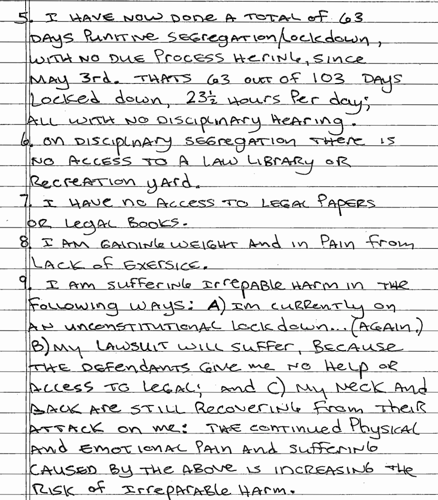 5. I HAVE NOW DONE A TOTAL OF 63
DAYS PUNITIVE SEGREGATION/LOCKDOWN,
WITH NO DUE PROCESS HERING, SINCE
MAY 3RD. THATS 63 OUT OF 103 DAYS
LOCKED DOWN, 23½ HOURS PER DAY;
ALL WITH NO DISCIPLNARY HEARING.
6. ON DISCIPLNARY SEGREGATION THERE IS
NO ACCESS TO A LAW LIBRARY OR
RECREATION YARD.
7. I HAVE NO ACCESS TO LEGAL PAPERS
OR LEGAL BOOKS.
8. I AM GAINING WEIGHT AND IN PAIN FROM
LACK OF EXERSICE.
9. I AM SUFFERING IRREPABLE HARM IN THE
FOLLOWING WAYS: A) IM CURRENTLY ON
AN UNCONSTITUTIONAL LOCKDOWN...(AGAIN,)
B) MY LAWSUIT WILL SUFFER, BECAUSE
THE DEFENDANTS GIVE ME NO HELP OR
ACCESS TO LEGAL; AND C) MY NECK AND
BACK ARE STILL RECOVERING FROM THEIR
ATTACK ON ME: THE CONTINUED PHYSICAL
AND EMOTIONAL PAIN AND SUFFERING
CAUSED BY THE ABOVE IS INCREASING THE
RISK OF IRREPARABLE HARM.